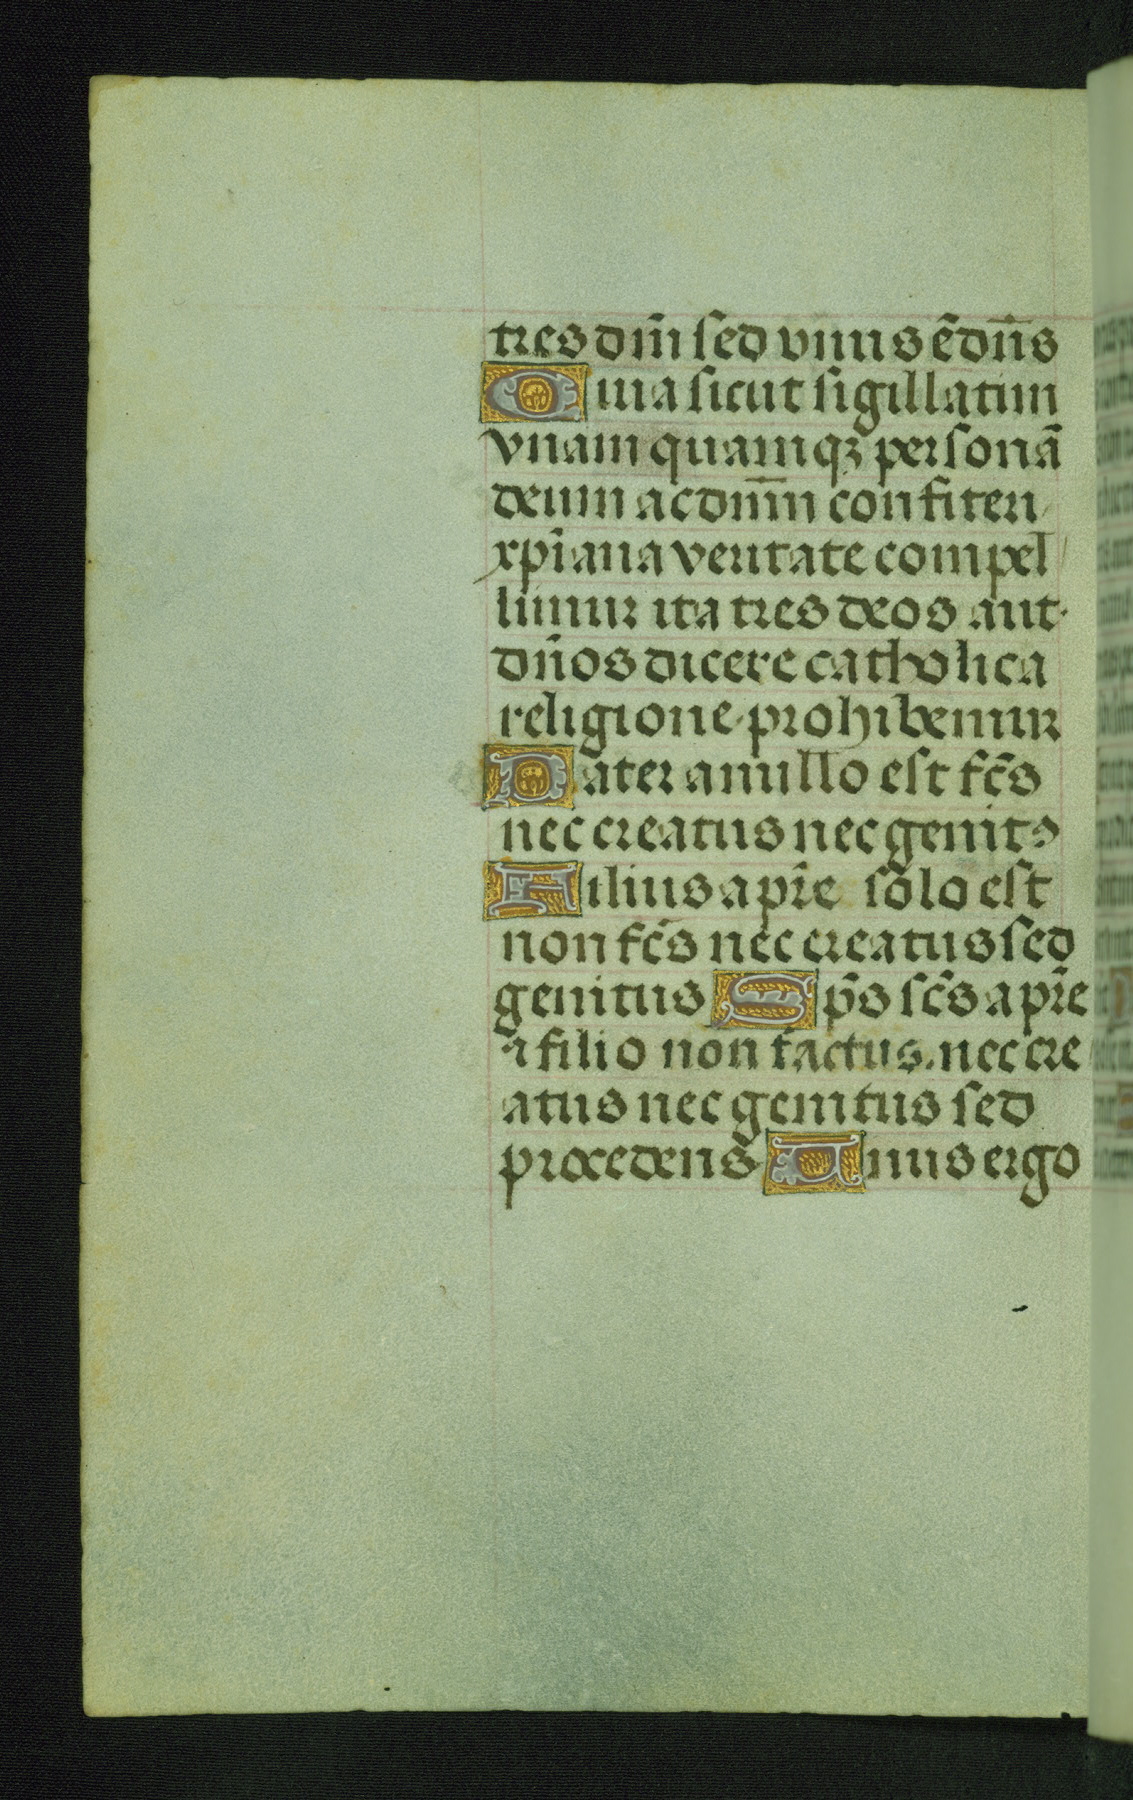 tres dn̄i sed vnus ē dn̄s
Quia sicut sigillatim
vnam quamqꝫ personā
deum ac dn̄m confiteri
xp̄iana veritate compel
limur ita tres deos aut
dn̄os dicere catholica
religione prohibemur
Pater a nullo est fc̄s
nec creatus nec genitꝰ
Filius a pr̄e solo est
non fc̄s nec creatus sed
genitus Sp̄s sc̄s a pr̄e
⁊ filio non factus nec cre
atus nec genitus sed
procedens Vnus ergo